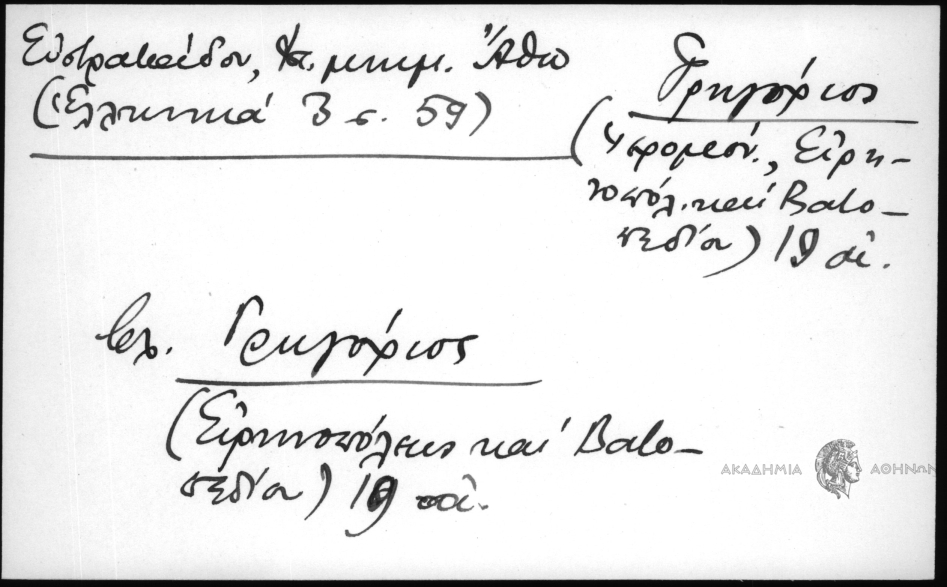 Εὐστρατιάδου, Κατ. μνημ. Ἄθω
(Ἑλληνικά 3 σ. 59)
Γρηγόριος
(Ἱερομόν., Εἰρη-
νοπόλ. καί Βατο-
πεδίου) 19 αἰ.
βλ. Γρηγόριος
(Εἰρηνοπόλεως καί Βατο-
πεδίου) 19 αἰ.
ΑΚΑΔΗΜΙΑ ΑΘΗΝΩΝ